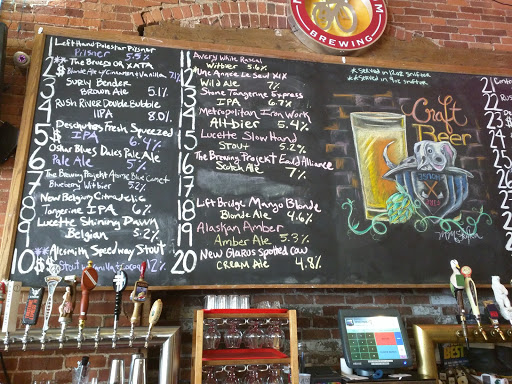 BREWING
1 Left Hand Polestar Pilsner
Pilsner 5.5%
2 ** The Bruery or Xata
$ Blonde Ale w/ Cinnamon & Vanilla 7.2%
3 Surly Bender
Brown Ale 5.1%
4 Rush River Double Bubble
IIPA 8.0%
5 Deschutes Fresh Squeezed
$ IPA 6.4%
6 Oskar Blues Dales Pale Ale
Pale Ale 5
7 The Brewing Projekt Atomic Blue Comet
Blueberry Witbier 5.2%
8 New Belgium Citradelic
Tangerine IPA 6%
9 Lucette Shining Dawn
Belgian 5.2%
10 ** Alesmith Speedway Stout
$ Stout w/ Vanilla & 12%
11 Avery White Rascal
Witbier 5.6%
12 Une Annee Le Seul XIX
Wild Ale 7%
13 Stone Tangerine Express
IPA 6.7%
14 Metropolitan Iron Work
Altbier 5.4%
15 Lucette Slow Hand
Stout 5.2%
16 The Brewing Projekt Alliance
Scotch Ale 7%
17
18 Left Bridge Mango Blonde
Blonde Ale 4.6%
19 Alaskan Amber
Amber Ale 5.3%
20 New Glarus Spotted Cow
Cream Ale 4.8%
* Served in 12oz Snifter
** Served in 9oz Snifter
Craft
Beer
21
22
23
24
25
BEST